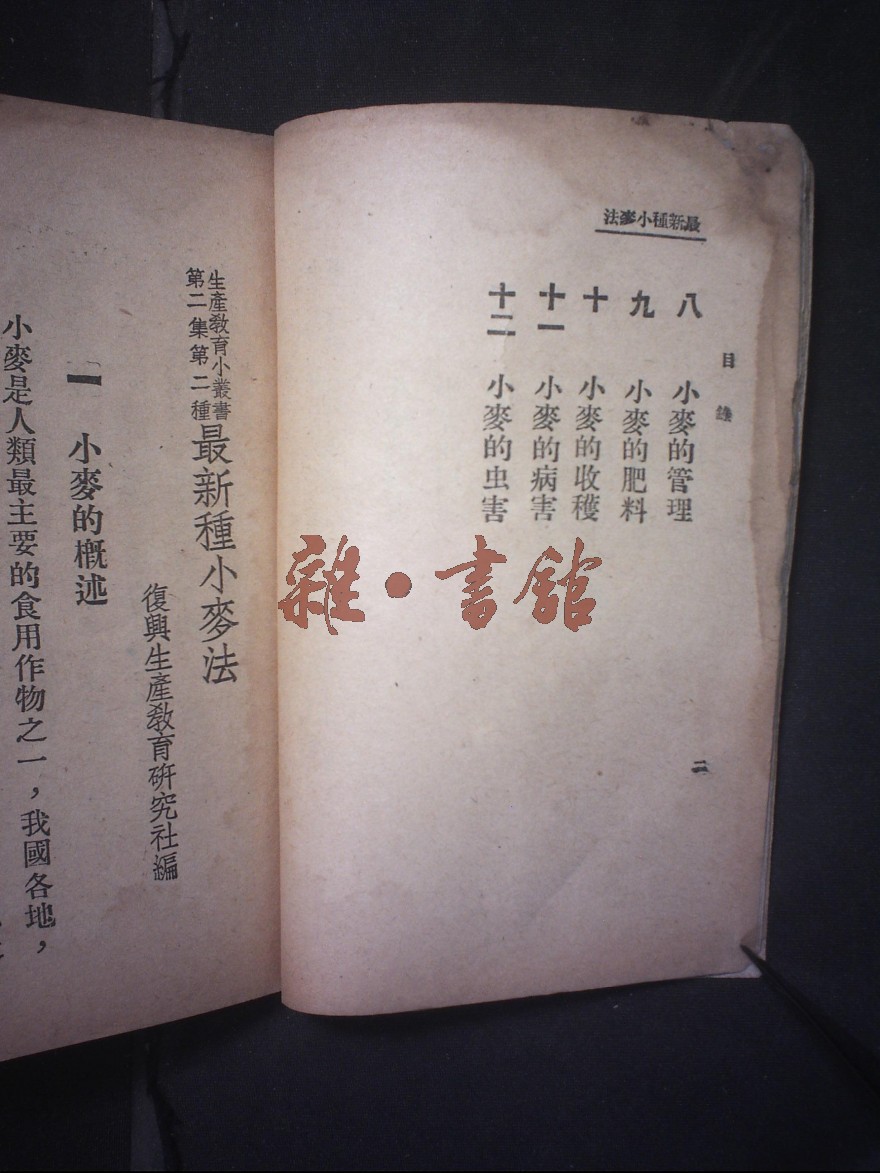 最新種小麥法
目錄
八 小麥的管理
九 小麥的肥料
十 小麥的收穫
十一 小麥的病害
十二 小麥的虫害
二
生產教育小叢書
第二集第二種
最新種小麥法
復興生產教育研究社編
一 小麥的概述
小麥是人類最主要的食用作物之一，我國各地，
雜·書館